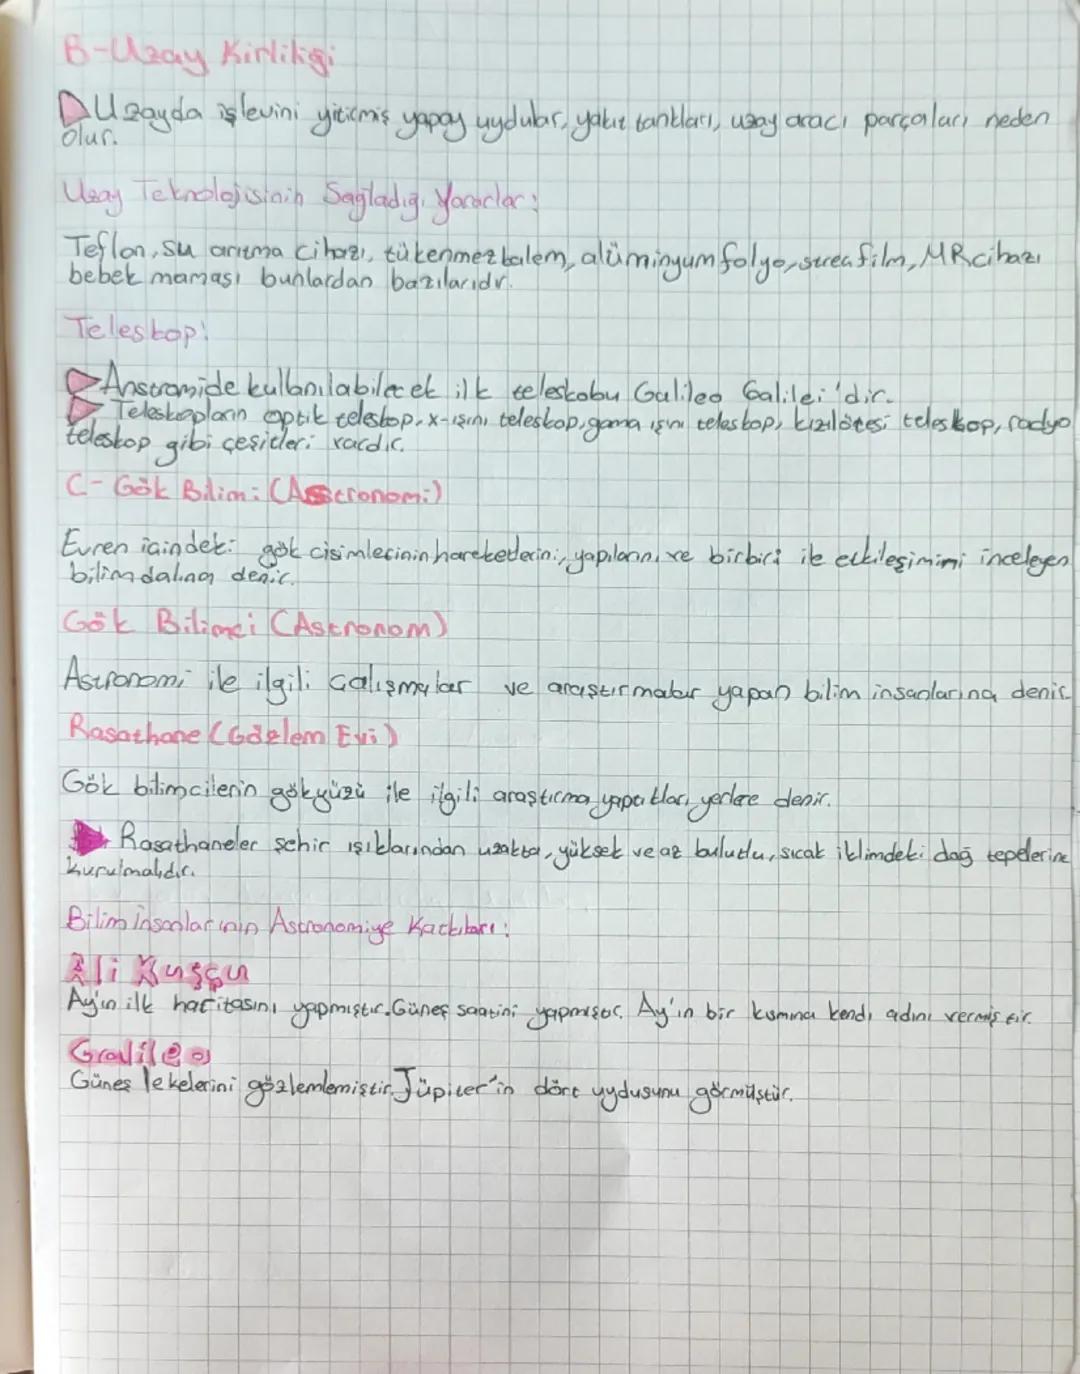 B-Uzay Kirliliği
Uzayda işlevini yitirmiş yapay uydular, yakıt tankları, uzay aracı parçaları neden
olur.
Uzay Teknolojisinin Sağladığı Yararlar:
Teflon, su arıtma cihazı, tükenmez kalem, alüminyum folyo, streç film, MR cihazı
bebek maması bunlardan bazılarıdır.
Teleskop:
Anstromide kullanılabilecek ilk teleskobu Galileo Galilei'dir.
Teleskopların optik teleskop, x-ışını teleskop, gama ışını teleskop, kızılötesi teleskop, radyo
teleskop gibi çeşitleri vardır.
C- Gök Bilimi (Astronomi)
Evren içindeki gök cisimlerinin hareketlerini, yapılarını ve birbiri ile etkileşimimi inceleyen
bilim dalına denir.
Gök Bilimci (Astronom)
Astronomi ile ilgili çalışmalar ve araştırmalar yapan bilim insanlarına denir.
Rasathane (Gözlem Evi)
Gök bilimcilerin gökyüzü ile ilgili araştırma yaptıkları yerlere denir.
Rasathaneler şehir ışıklarından uzakta, yüksek ve az bulutlu, sıcak iklimdeki dağ tepelerine
kurulmalıdır.
Bilim insanlarının Astronomiye Katkıları:
Ali Kuşçu
Ay'ın ilk haritasını yapmıştır. Güneş saatini yapmıştır. Ay'ın bir kısmına kendi adını vermiştir.
Galileo
Güneş lekelerini gözlemlemiştir. Jüpiter'in dört uydusunu görmüştür.